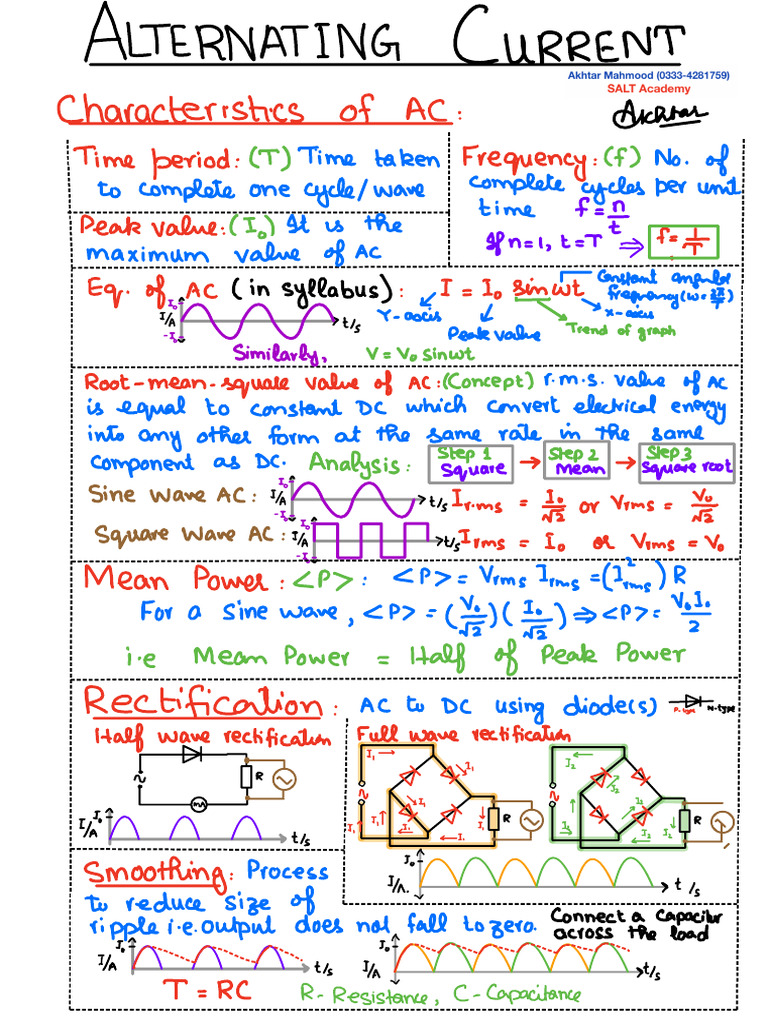 ALTERNATING CURRENT
Akhtar Mahmood (0333-4281759)
SALT Academy
Akhtar
Characteristics of AC:
Time period: (T) Time taken
to complete one cycle/wave
Frequency: (f) No. of
complete cycles per unit
time f = n/t
If n=1, t=T ⇒ f = 1/T
Peak value: (I₀) It is the
maximum value of AC
Eq. of AC (in syllabus): I = I₀ sinωt
Constant angular
frequency (ω = 2π/T)
Y-axis
x-axis
Peak value
Trend of graph
I₀
I/A
-I₀
t/s
Similarly, V = V₀ sinωt
Root-mean-square value of AC: (Concept) r.m.s. value of AC
is equal to constant DC which convert electrical energy
into any other form at the same rate in the same
component as DC. Analysis:
Step 1
Square
→
Step 2
Mean
→
Step 3
Square root
Sine Wave AC:
I₀
I/A
-I₀
t/s
Ir.ms = I₀/√2 or Vrms = V₀/√2
Square Wave AC:
I/A
-I₀
t/s
Irms = I₀ or Vrms = V₀
Mean Power: <P>: <P> = Vrms Irms = (I²rms) R
For a sine wave, <P> = (V₀/√2)(I₀/√2) ⇒ <P> = V₀I₀/2
i.e Mean Power = Half of Peak Power
Rectification: AC to DC using diode(s)
P-type
N-type
Half wave rectification
R
mA
I₀
I/A
t/s
Full wave rectification
I₁
I₁
I₁
I₁
I₁
I₁
I₁
I₁
R
I₂
I₂
I₂
I₂
I₂
I₂
I₂
R
I₀
I/A.
t/s
Smoothing: Process
to reduce size of
ripple i.e. output does not fall to zero.
Connect a capacitor
across the load
I₀
I/A
t/s
I₀
I/A
t/s
T = RC
R- Resistance, C- Capacitance